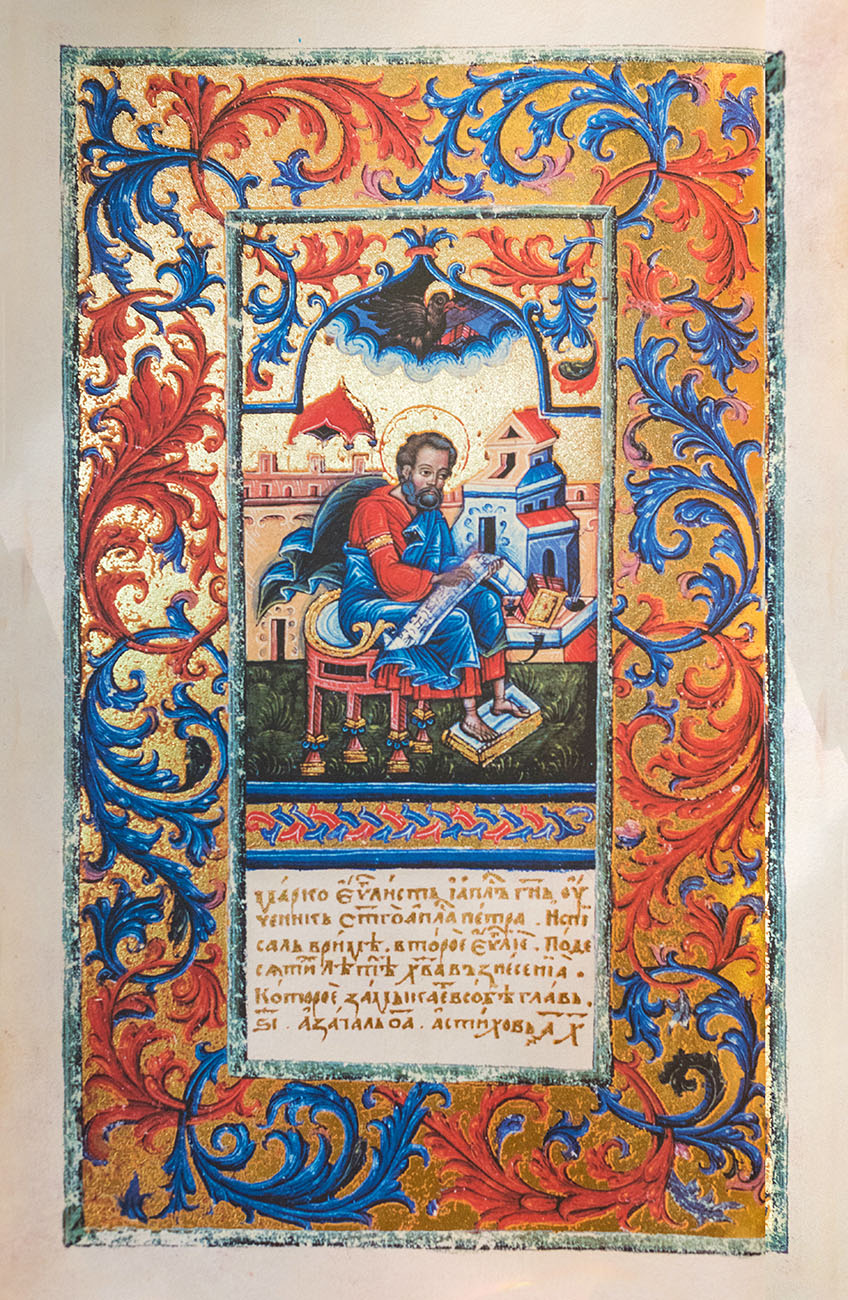 Марко єѵⷢ҇листъ, іапⷭ҇лъ гⷭ҇нь, оу
ченикъ ст҃гоапⷭ҇ла петра. Испі
салъ вримѣ. второе єѵⷢ҇лїе. Поде
сѧтїи лѣтѣ хв҃а възнесениѧ.
Которое замыкаєвсобѣ главъ.
ѕ҃і. азачалъ о҃а. астиховъ ҂а҃х